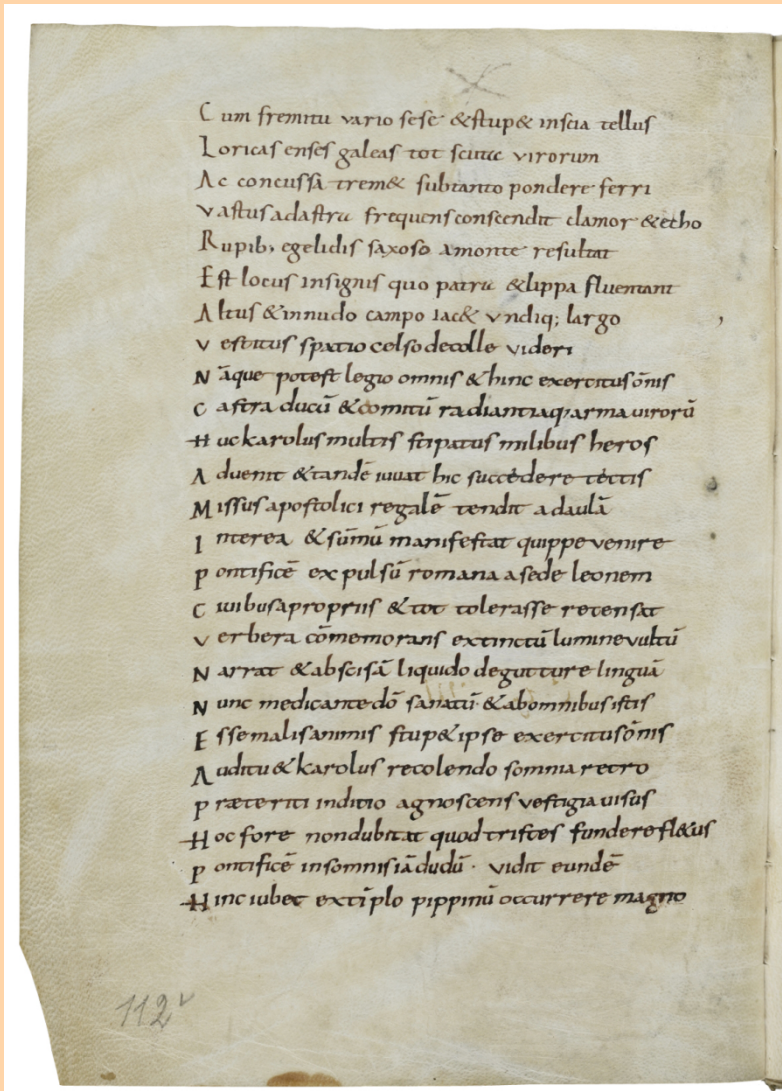 Cum fremitu vario sese &stup& inscia tellus
Loricas enses galeas tot scuta virorum
Ac concussa trem& subtanto pondere ferri
vastusadastra frequensconscendit clamor &echo
Rupib; egelidis saxoso amonte resultat
Est locus insignis quo patra &lippa fluentant
Altus &innudo campo iac& vndiq; largo
vestitus spatio celsodecolle videri
Nāque potest legio omnis & hinc exercitusōnis
Castra ducū &comitū radiantiaq; arma uirorū
Huc karolus multis stipatus milibus heros
Aduenit &tandē iuuat hic succedere tectis
Missus apostolici regalē tendit adaulā
Interea &sūmū manifestat quippe venire
Pontificē expulsū romana asede leonem
Ciuibus apropriis &tot tolerasse retensat
verbera cōmemorans extinctū lumine vultū
Narrat &abscisā liquido degutture linguā
Nunc medicante dō sanatū &abomnibus istis
Esse malis animis stup& ipse exercitusōnis
Auditu & karolus recolendo somnia retro
præteriti inditio agnoscens vestigia uisus
Hoc fore nondubitat quod tristes fundere fl&us
pontificē insomnis iādudū · vidit eundē
Hinc iubet extīplo pippinū occurrere magno
112v